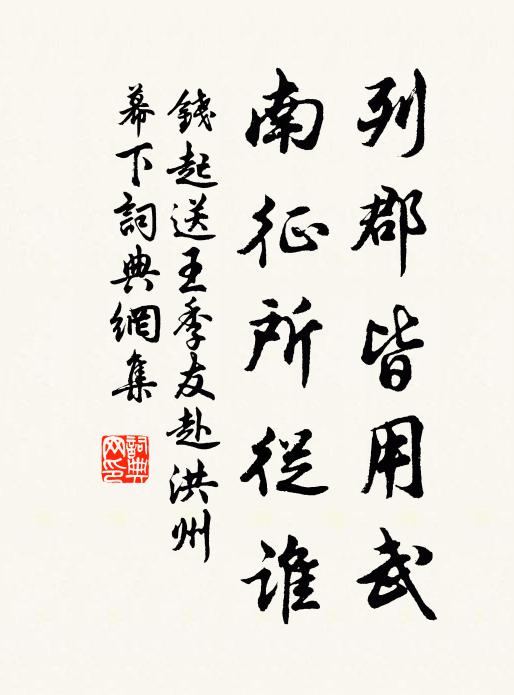 列郡皆用武
南征所從誰
錢起送王季友赴洪州
幕下詞典網集
詞典網印